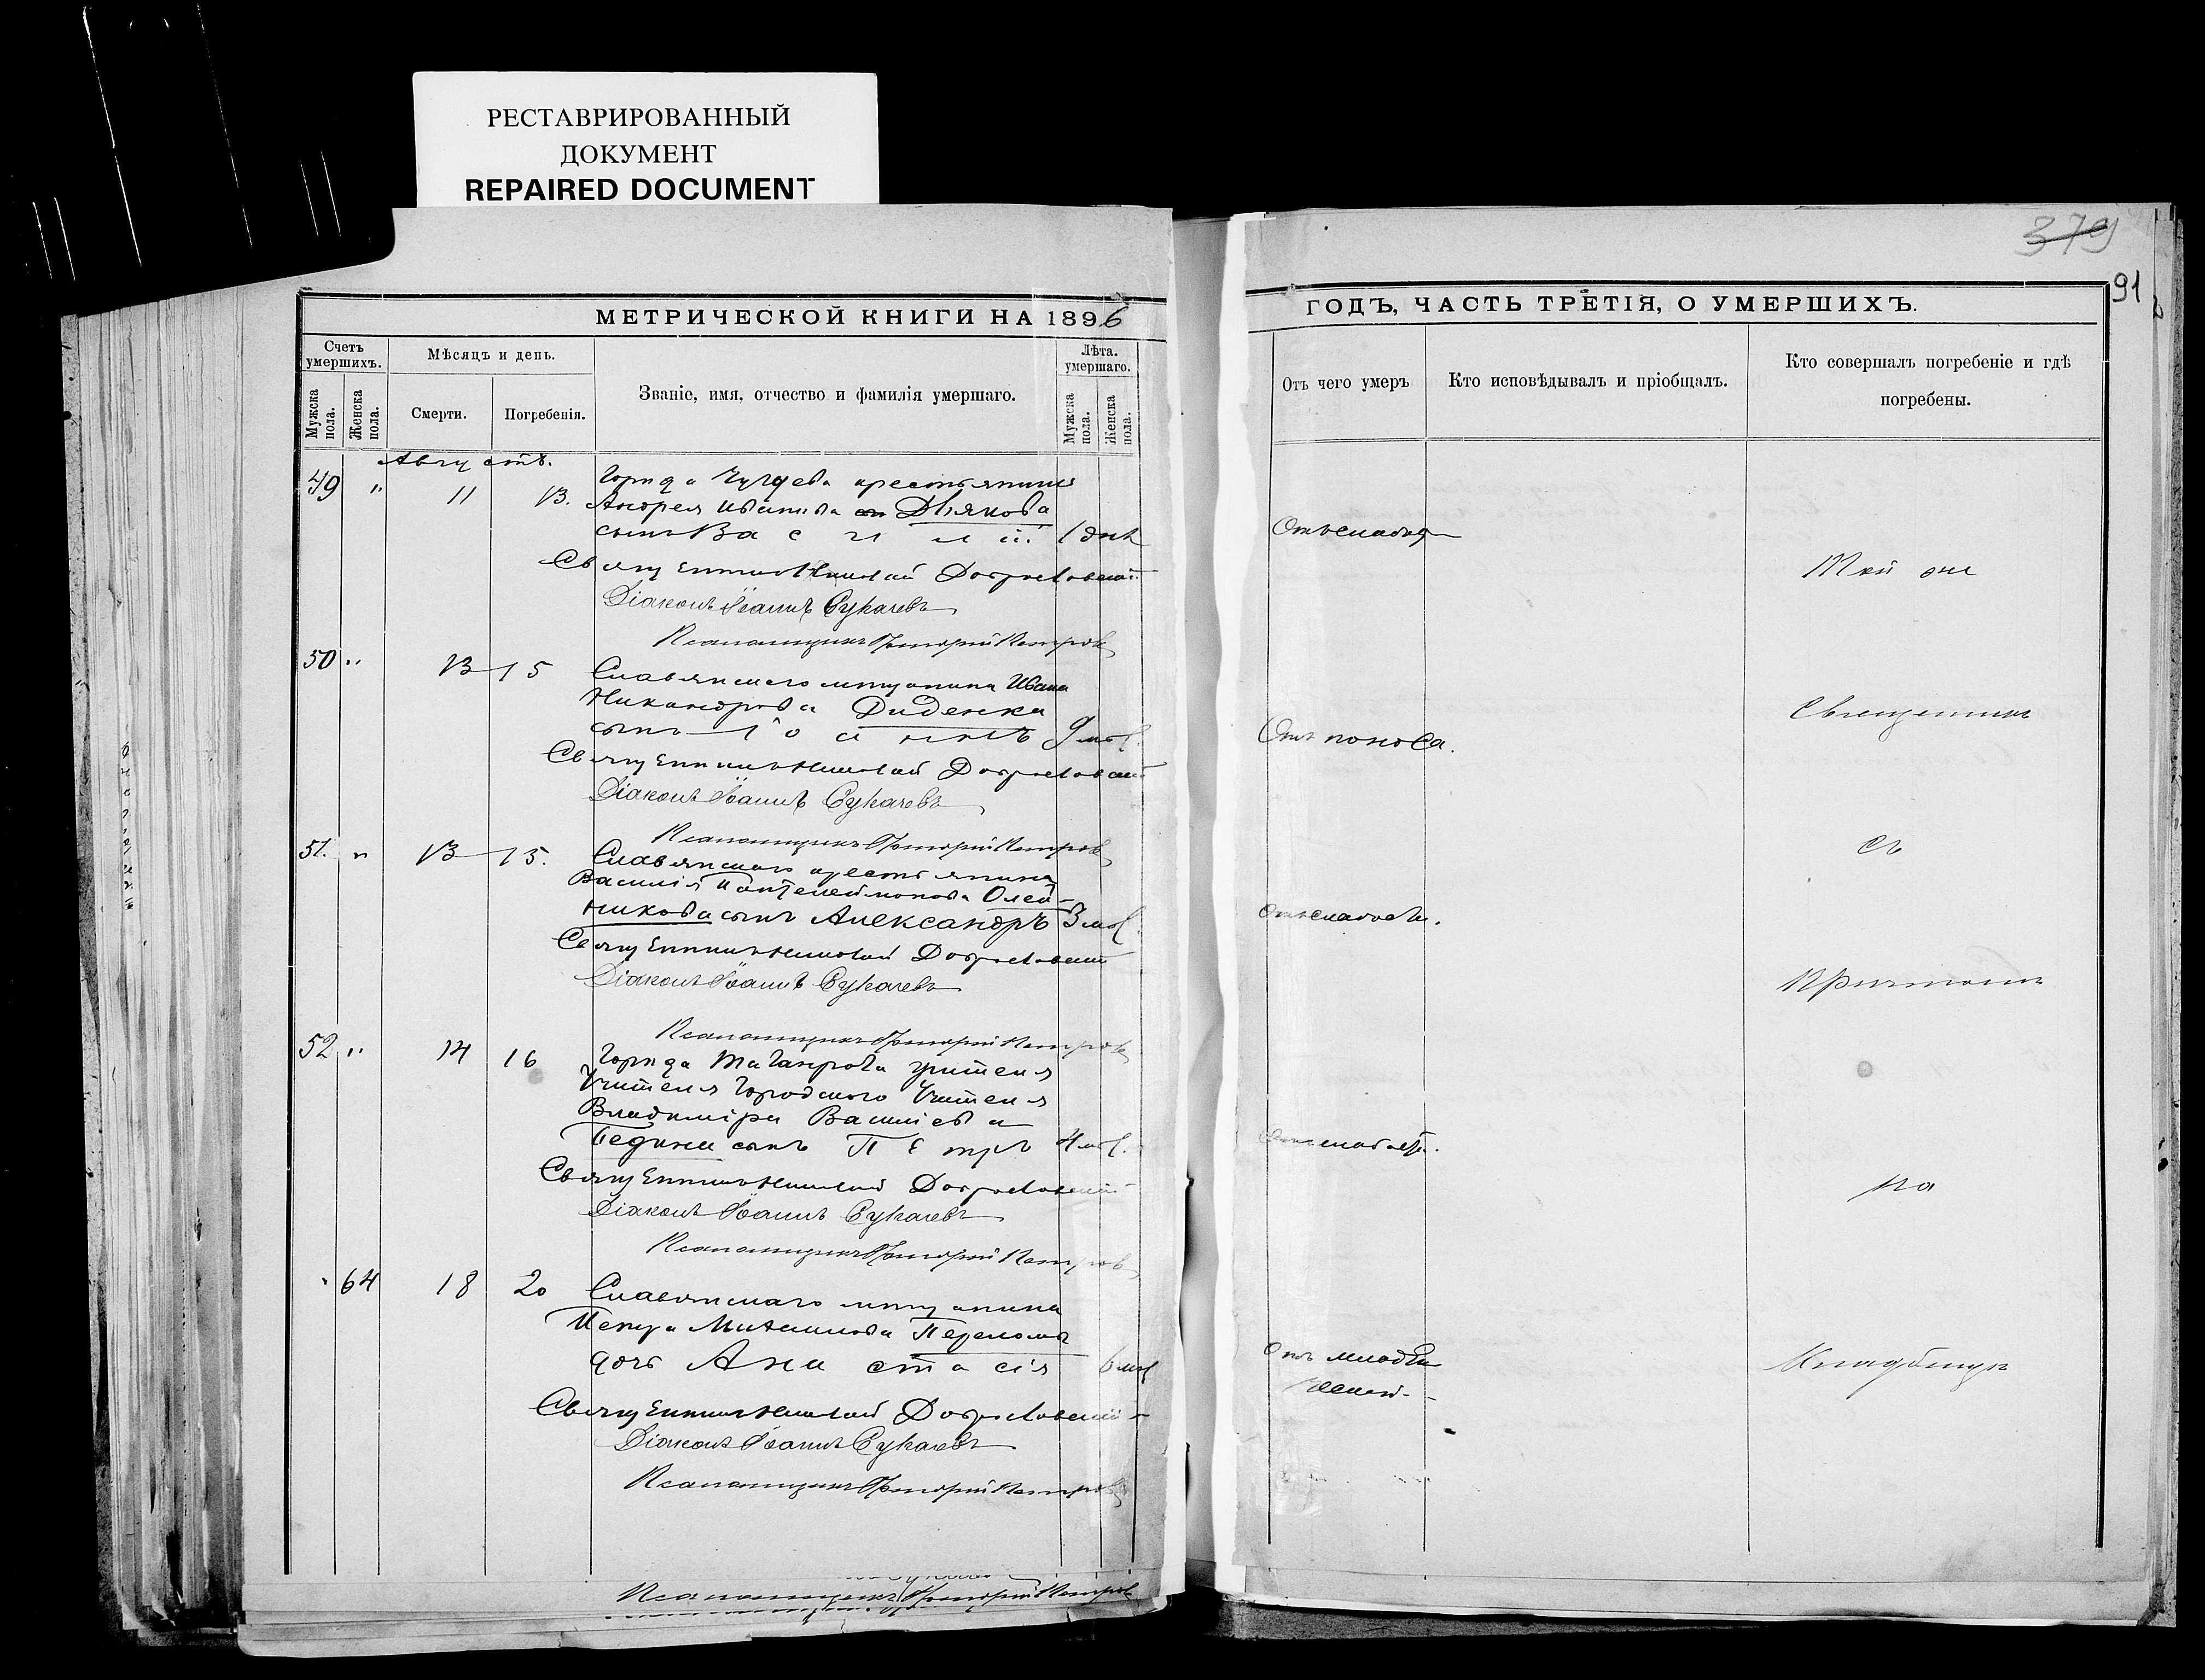 РЕСТАВРИРОВАННЫЙ
ДОКУМЕНТ
REPAIRED DOCUMENT
379
91
МЕТРИЧЕСКОЙ КНИГИ НА 1896
ГОДЪ, ЧАСТЬ ТРЕТІЯ, О УМЕРШИХЪ.
Счетъ умершихъ.
Мужска пола.
Женска пола.
Мѣсяцъ и день.
Смерти.
Погребенія.
Званіе, имя, отчество и фамилія умершаго.
Лѣта. умершаго.
Мужска пола.
Женска пола.
Отъ чего умеръ
Кто исповѣдывалъ и пріобщалъ.
Кто совершалъ погребеніе и гдѣ
погребены.
Августъ.
49 " 11 13. Города Чугуева крестьянина
Андрея Иванова Дьякова
сынъ Василій 1 дня
Отъ слабос
Той же
Священникъ Николай
Діаконъ Іоаннъ Сукачевъ
Псаломщикъ Григорій Петровъ
50 " 13 15 Славянскаго мѣщанина Ивана
Никандрова Диденка
сынъ Іоаннъ 9 мѣс.
Отъ поноса.
Священникъ
Священникъ Николай
Діаконъ Іоаннъ Сукачевъ
Псаломщикъ Григорій Петровъ
51. " 13 15. Славянскаго крестьянина
Василія Пантелеймонова Олей-
никова сынъ Александръ 3 мѣс.
Отъ слабости.
съ
Священникъ Николай
Діаконъ Іоаннъ Сукачевъ
Причтомъ
Псаломщикъ Григорій Петровъ
52 " 14 16 Города Таганрога учителя
Учителя Городского Учителя
Владиміра Васильева
сынъ Петръ 4 мѣс.
Отъ слабости.
на
Священникъ Николай
Діаконъ Іоаннъ Сукачевъ
Псаломщикъ Григорій Петровъ
" 64 18 20 Славянскаго мѣщанина
Петра Михаилова
дочь Анастасія 6 мѣс
Отъ младен
ческой
Кладбищѣ
Священникъ Николай
Діаконъ Іоаннъ Сукачевъ
Псаломщикъ Григорій Петровъ
Псаломщикъ Григорій Петровъ